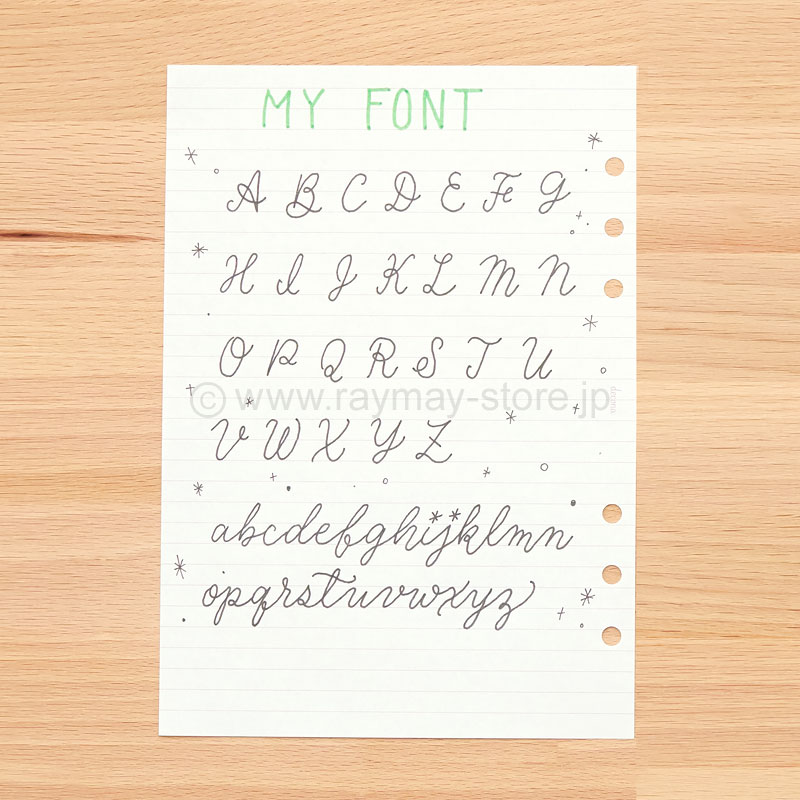 MY FONT
A B C D E F G
H I J K L M N
O P Q R S T U
© www.raymay-store.jp
V W X Y Z
abcdefghijklmn
opqrstuvwxyz